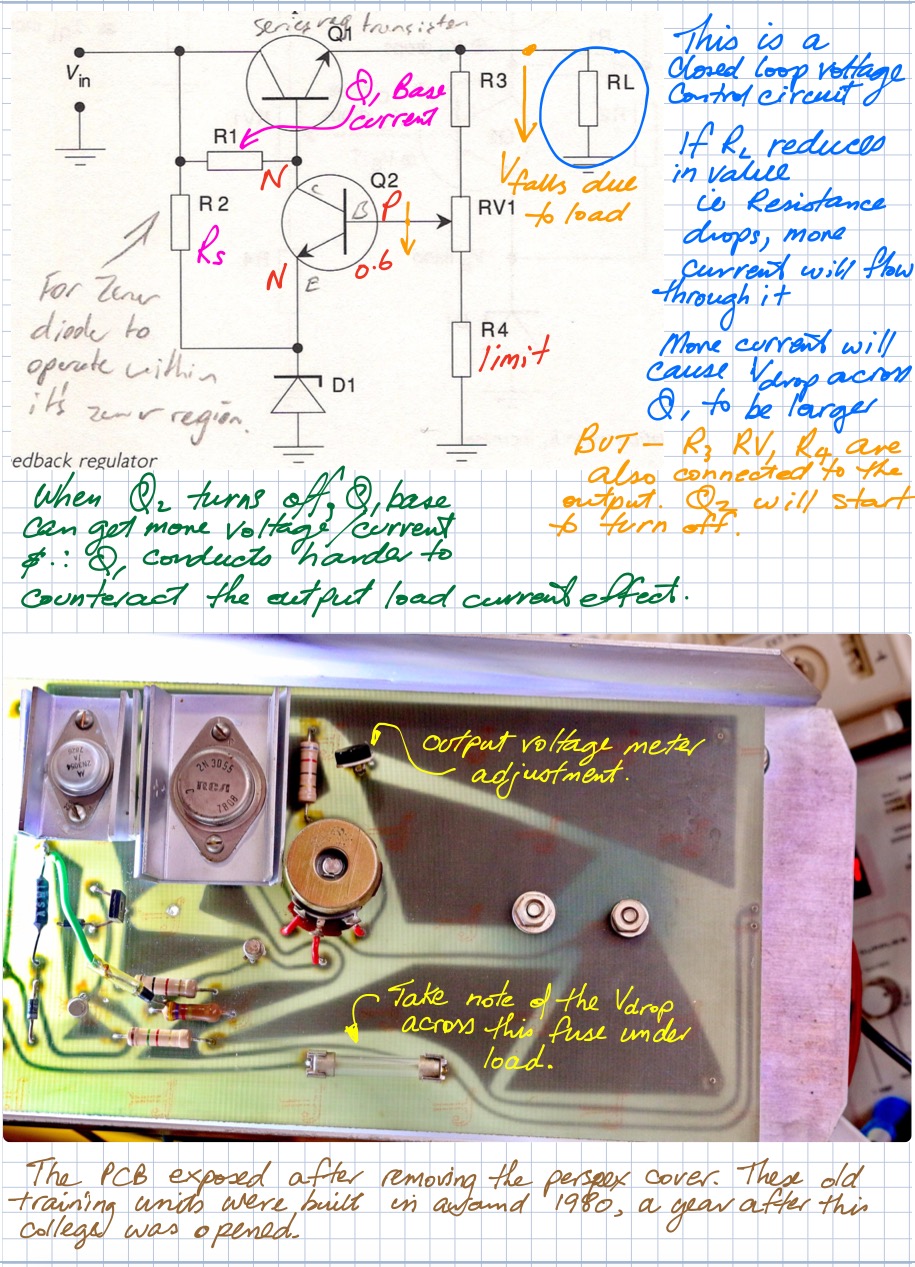 series reg transistor
Q1
Vin
R1
Q1 Base
current
N
R2
Rs
C
Q2
B
P
N
E
0.6
R3
RL
V falls due
to load
RV1
R4
limit
D1
For Zener
diode to
operate within
it's zener region.
edback regulator
This is a
closed loop voltage
control circuit
If RL reduces
in value
ie Resistance
drops, more
current will flow
through it
More current will
cause Vdrop across
Q1 to be larger
BUT – R3 RV1 R4 are
also connected to the
output. Q2 will start
to turn off.
When Q2 turns off, Q1 base
can get more voltage/current
& ∴ Q1 conducts harder to
counteract the output load current effect.
2N3054
2N3055
RCA
7808
output voltage meter
adjustment.
Take note of the Vdrop
across this fuse under
load.
The PCB exposed after removing the perspex cover. These old
training units were built in around 1980, a year after this
college was opened.